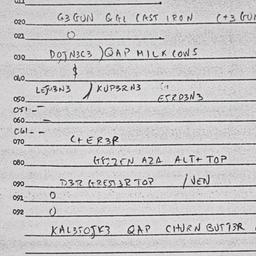 020 G3 GUN GGL CAST IRON C+3 GUN
021 0
030 DOJN3C3 ) QAP MILK COWS
$
040
LEJ13N3 / KUP3RN3
050 ETRD3N3
051 --
060 --
C61 --
070 C+ER3R
080 GEIZEN AZA ALT+ TOP
090 D3R GREST3R TOP /VEN
091 0
092 0
KAL35OJK3 QAP CHURN BUTT3R